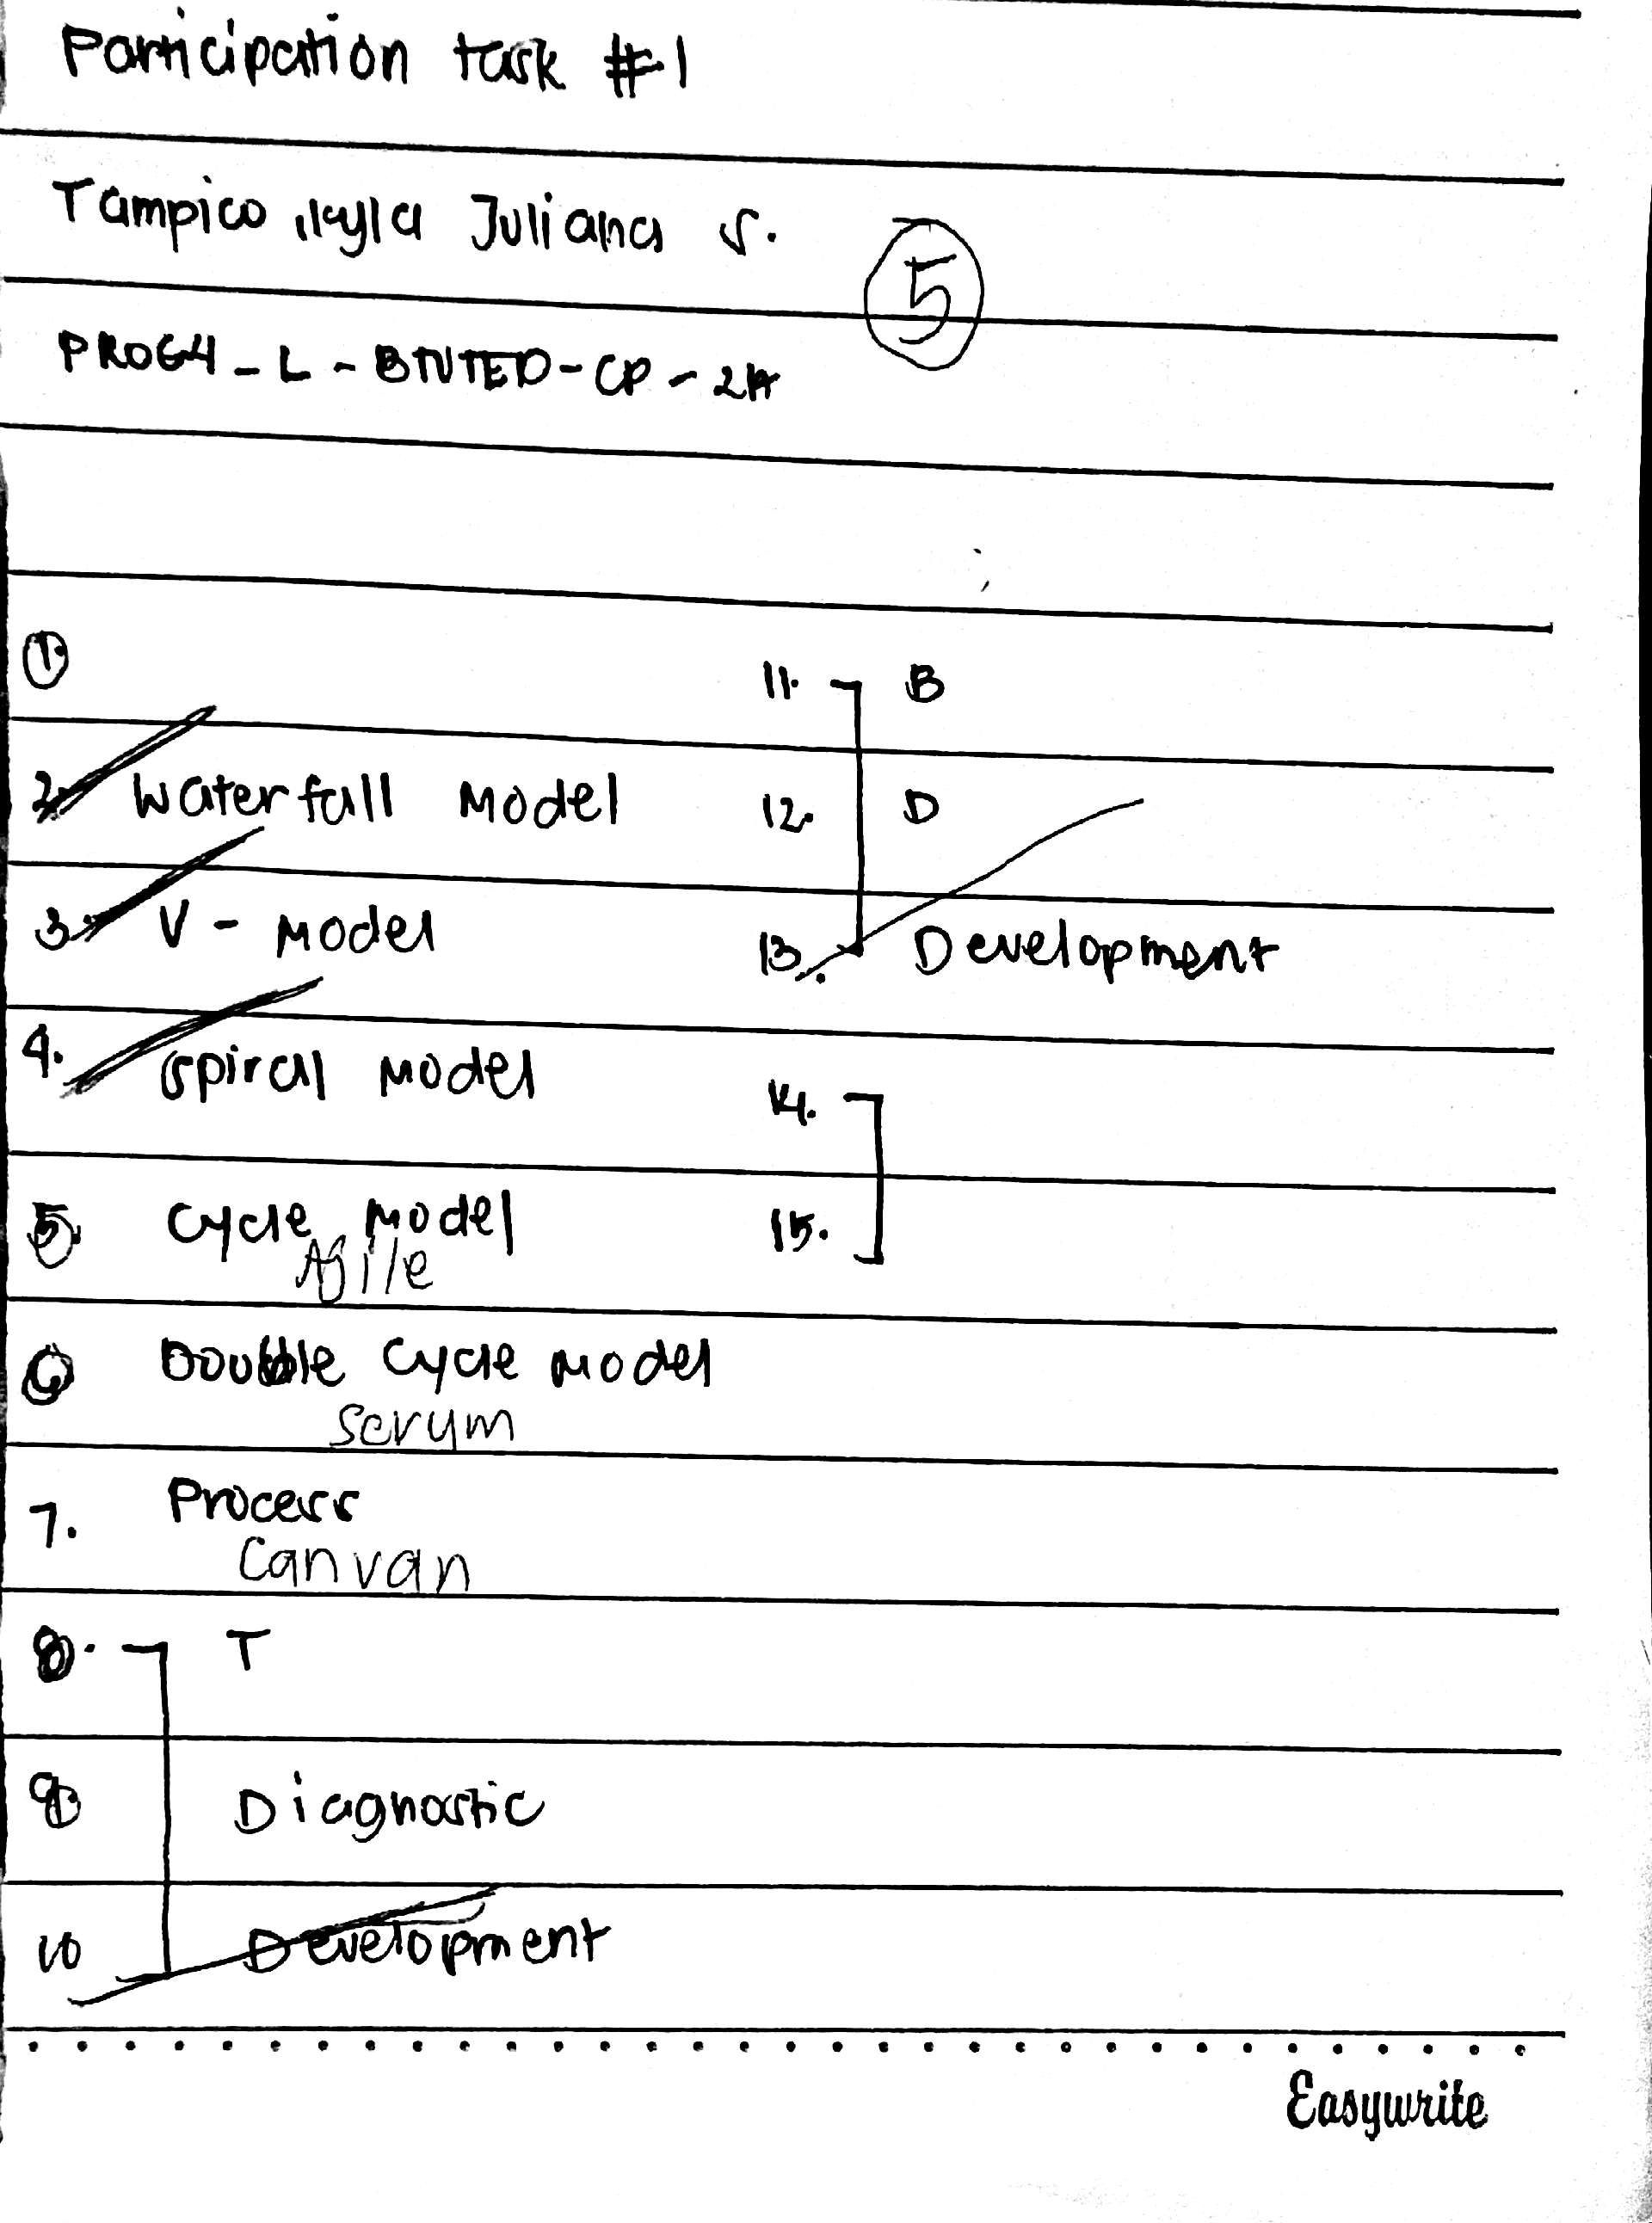 Participation task #1
Tampico Juliana S.
5
PROG4-L-BTVTED-CP-2A
1.
2. Waterfall Model
3. V-Model
4. Spiral Model
5. Cycle Model
Agile
6 Double Cycle Model
Scrum
7. Process
Canvan
8. T
9 Diagnostic
10 Development
11. B
12. D
13. Development
14.
15.
Easywrite